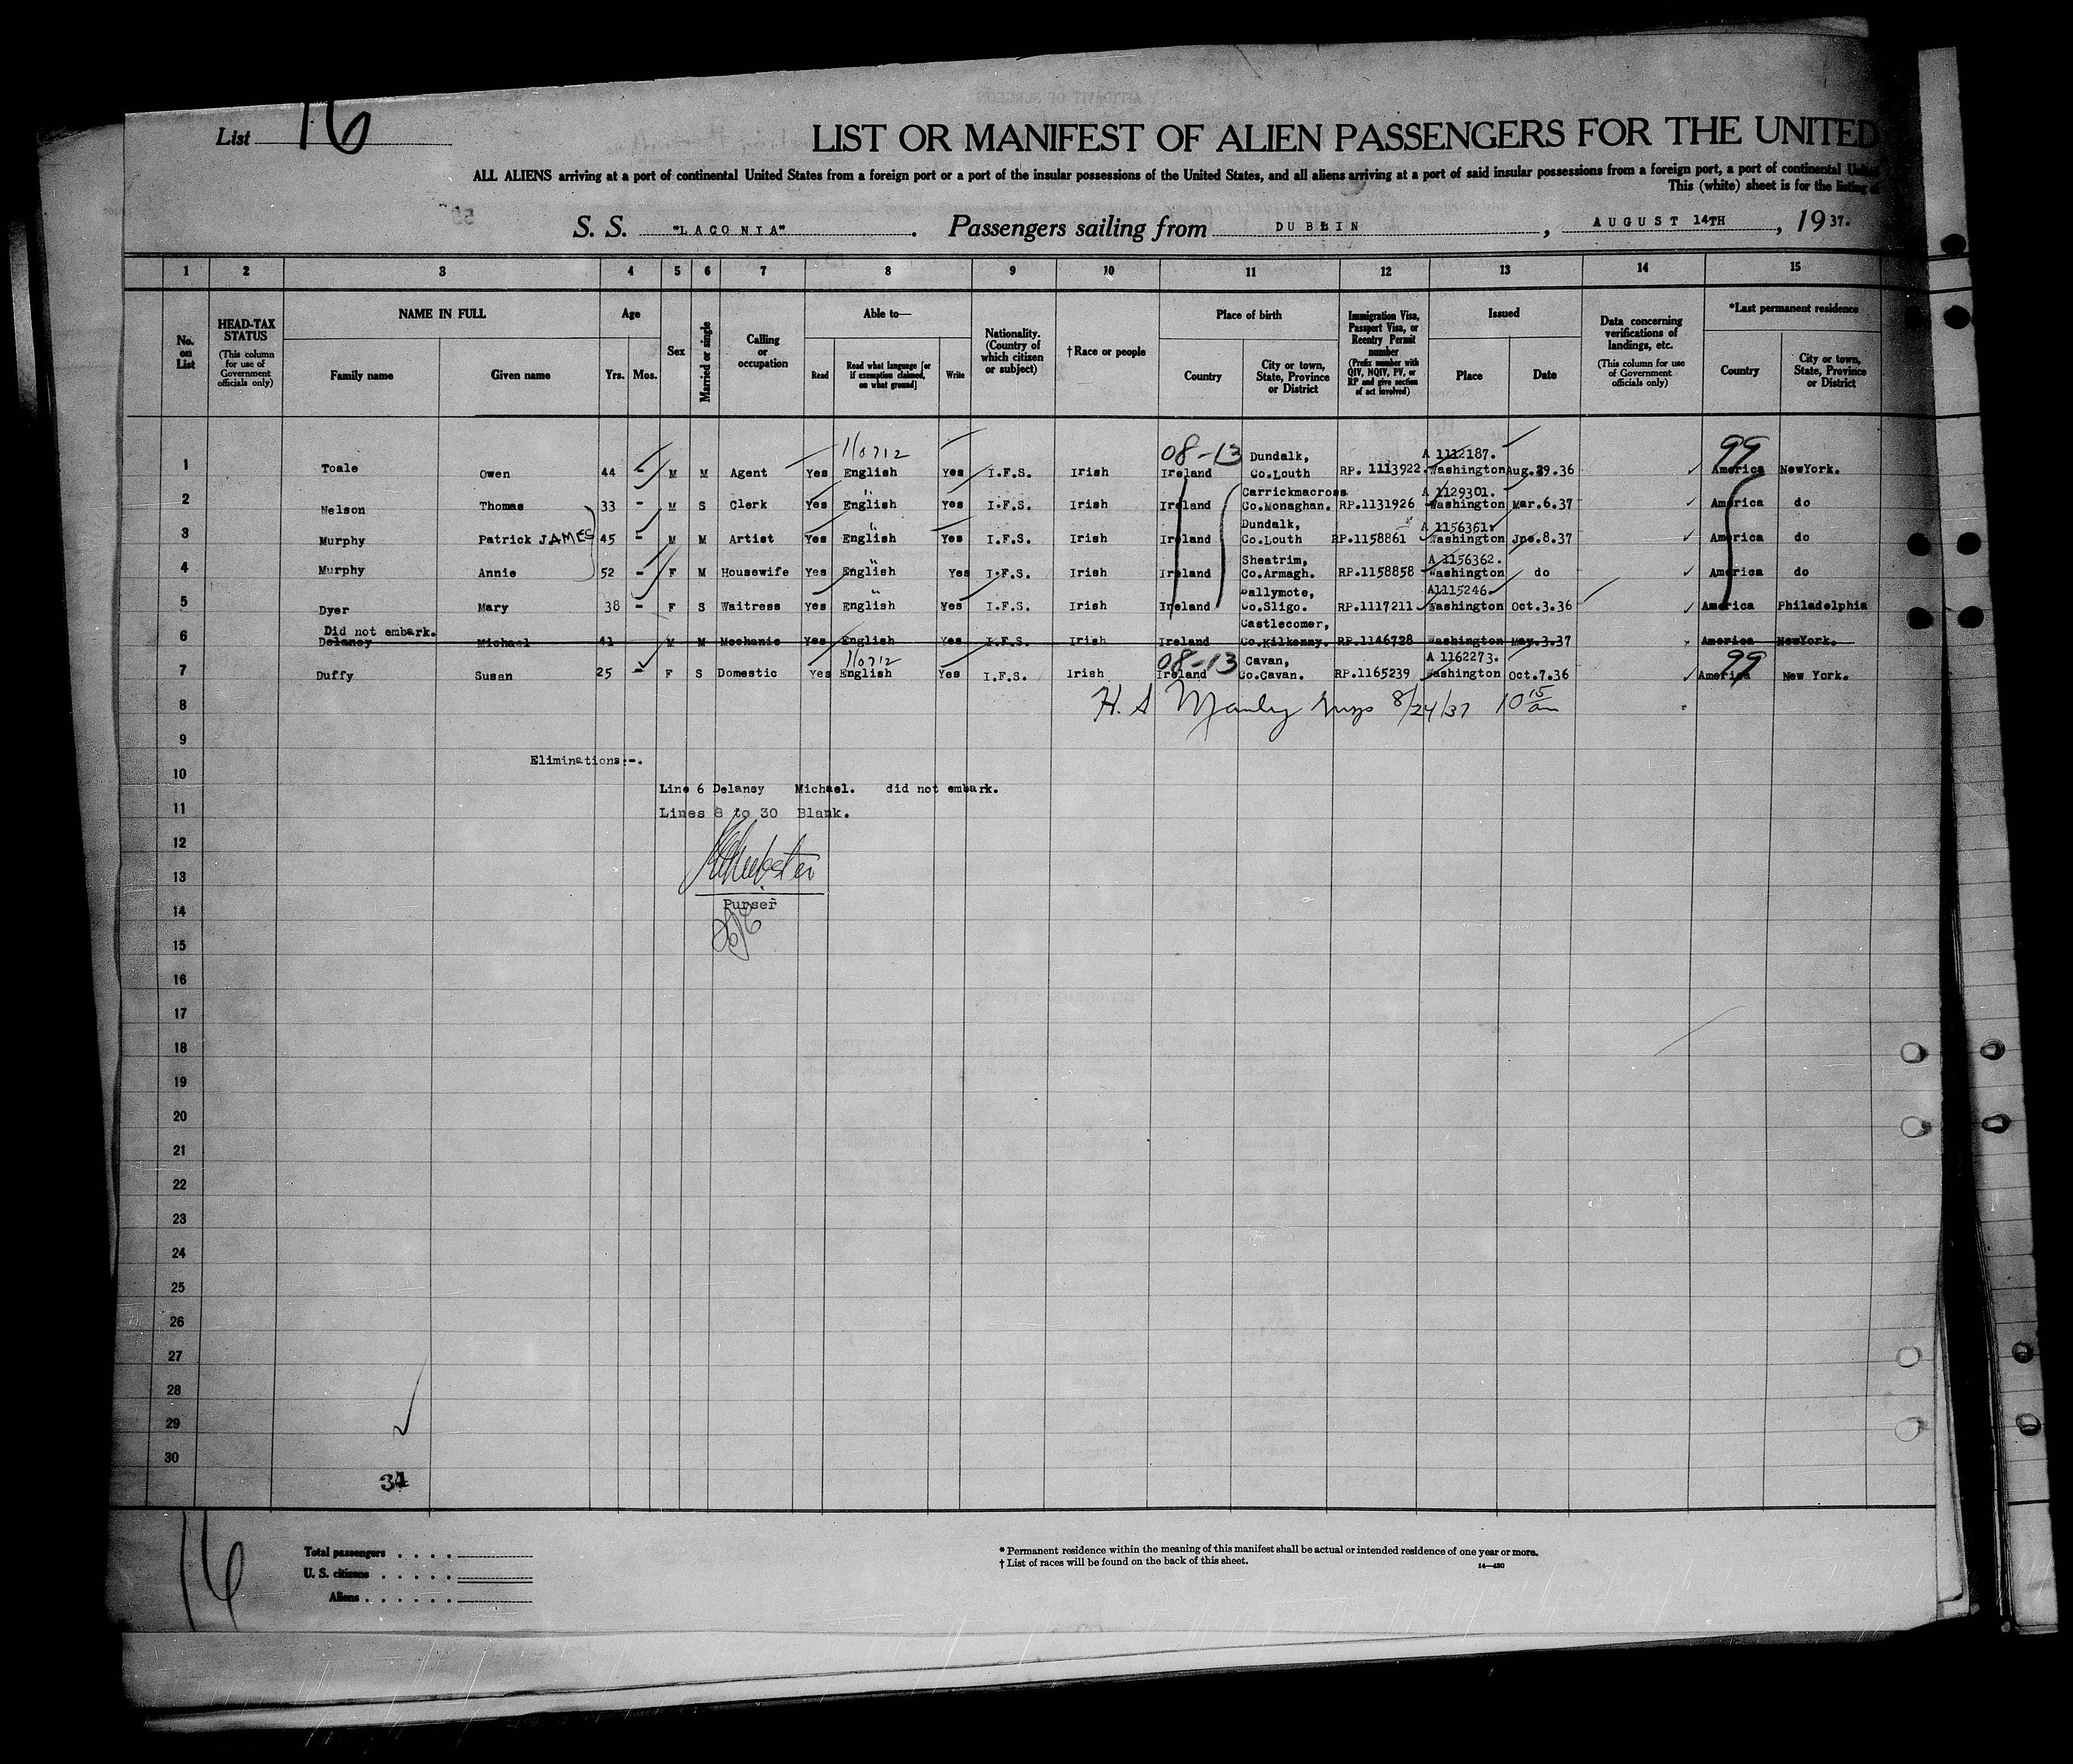 List 16
LIST OR MANIFEST OF ALIEN PASSENGERS FOR THE UNITED
ALL ALIENS arriving at a port of continental United States from a foreign port or a port of the insular possessions of the United States, and all aliens arriving at a port of said insular possessions from a foreign port, a port of continental
This (white) sheet is for the listing
S. S. "LACONIA". Passengers sailing from DUBLIN, AUGUST 14TH, 1937.
1 2 3 4 5 6 7 8 9 10 11 12 13 14 15
No. on List
HEAD-TAX STATUS (This column for use of Government officials only)
NAME IN FULL
Family name Given name
Age
Yrs. Mos.
Sex
Married or single
Calling or occupation
Able to—
Read Read what language [or if exemption claimed, on what ground] Write
Nationality. (Country of which citizen or subject)
†Race or people
Place of birth
Country City or town, State, Province or District
Immigration Visa, Passport Visa, or Reentry Permit number (Prefix number with QIV, NQIV, PV, or RP and give section of act involved)
Issued
Place Date
Data concerning verifications of landings, etc. (This column for use of Government officials only)
*Last permanent residence
Country City or town, State, Province or District
110712 08-13 Dundalk, A 1112187. 99
1 Toale Owen 44 - M M Agent Yes English Yes I.F.S. Irish Ireland Co.Louth RP. 1113922. Washington Aug.29.36 America NewYork.
Carrickmacross A 1129301.
2 Nelson Thomas 33 - M S Clerk Yes English Yes I.F.S. Irish Ireland Co.Monaghan. RP.1131926 Washington Mar.6.37 America do
Dundalk, A 1156361.
3 Murphy Patrick JAMES 45 - M M Artist Yes English Yes I.F.S. Irish Ireland Co.Louth RP.1158861 Washington Jne.8.37 America do
Sheatrim, A 1156362.
4 Murphy Annie 52 - F M Housewife Yes English Yes I.F.S. Irish Ireland Co.Armagh. RP.1158858 Washington do America do
Ballymote, A1115246.
5 Dyer Mary 38 - F S Waitress Yes English Yes I.F.S. Irish Ireland Co.Sligo. RP.1117211 Washington Oct.3.36 America Philadelphia
Did not embark. Castlecomer,
6 Delaney Michael 41 M M Mechanic Yes English Yes I.F.S. Irish Ireland Co.Kilkenny. RP.1146728 Washington May.3.37 America NewYork.
110712 08-13 Cavan, A 1162273. 99
7 Duffy Susan 25 - F S Domestic Yes English Yes I.F.S. Irish Ireland Co.Cavan. RP.1165239 Washington Oct.7.36 America New York.
8 H. S Manly 8/24/37 10 15 am
9
Eliminations:-.
10
Line 6 Delaney Michael. did not embark.
11
Lines 8 to 30 Blank.
12
13
Purser
14
15
16
17
18
19
20
21
22
23
24
25
26
27
28
29
30
34
16
Total passengers . . . .
U. S. citizens . . . . .
Aliens . . . . . .
* Permanent residence within the meaning of this manifest shall be actual or intended residence of one year or more.
† List of races will be found on the back of this sheet.
14—430